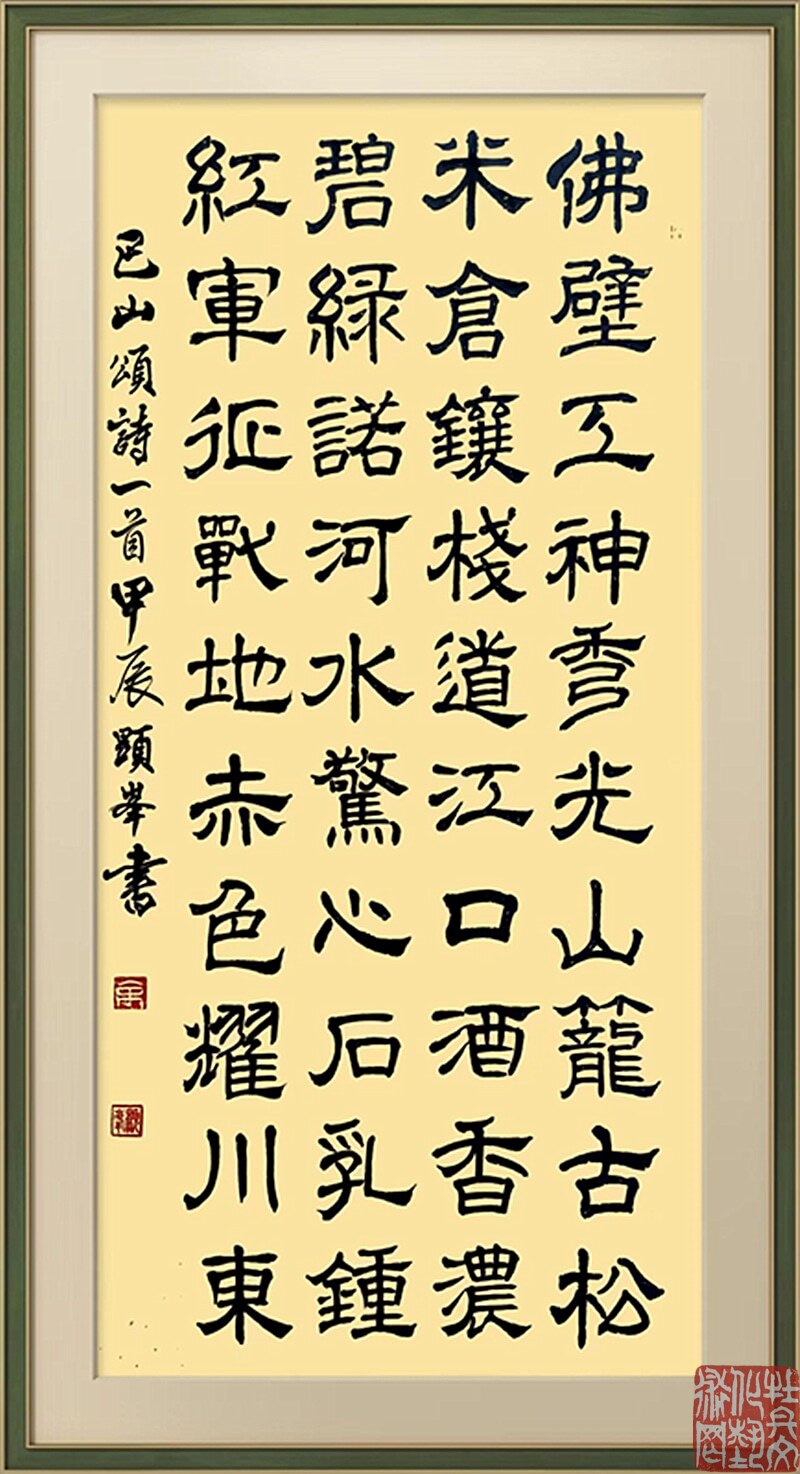 佛壁工神秀光山籠古松
米倉鑲棧道江口酒香濃
碧緑諾河水驚心石乳鍾
紅軍征戰地赤色耀川東
巴山頌詩一首甲辰顯峯書